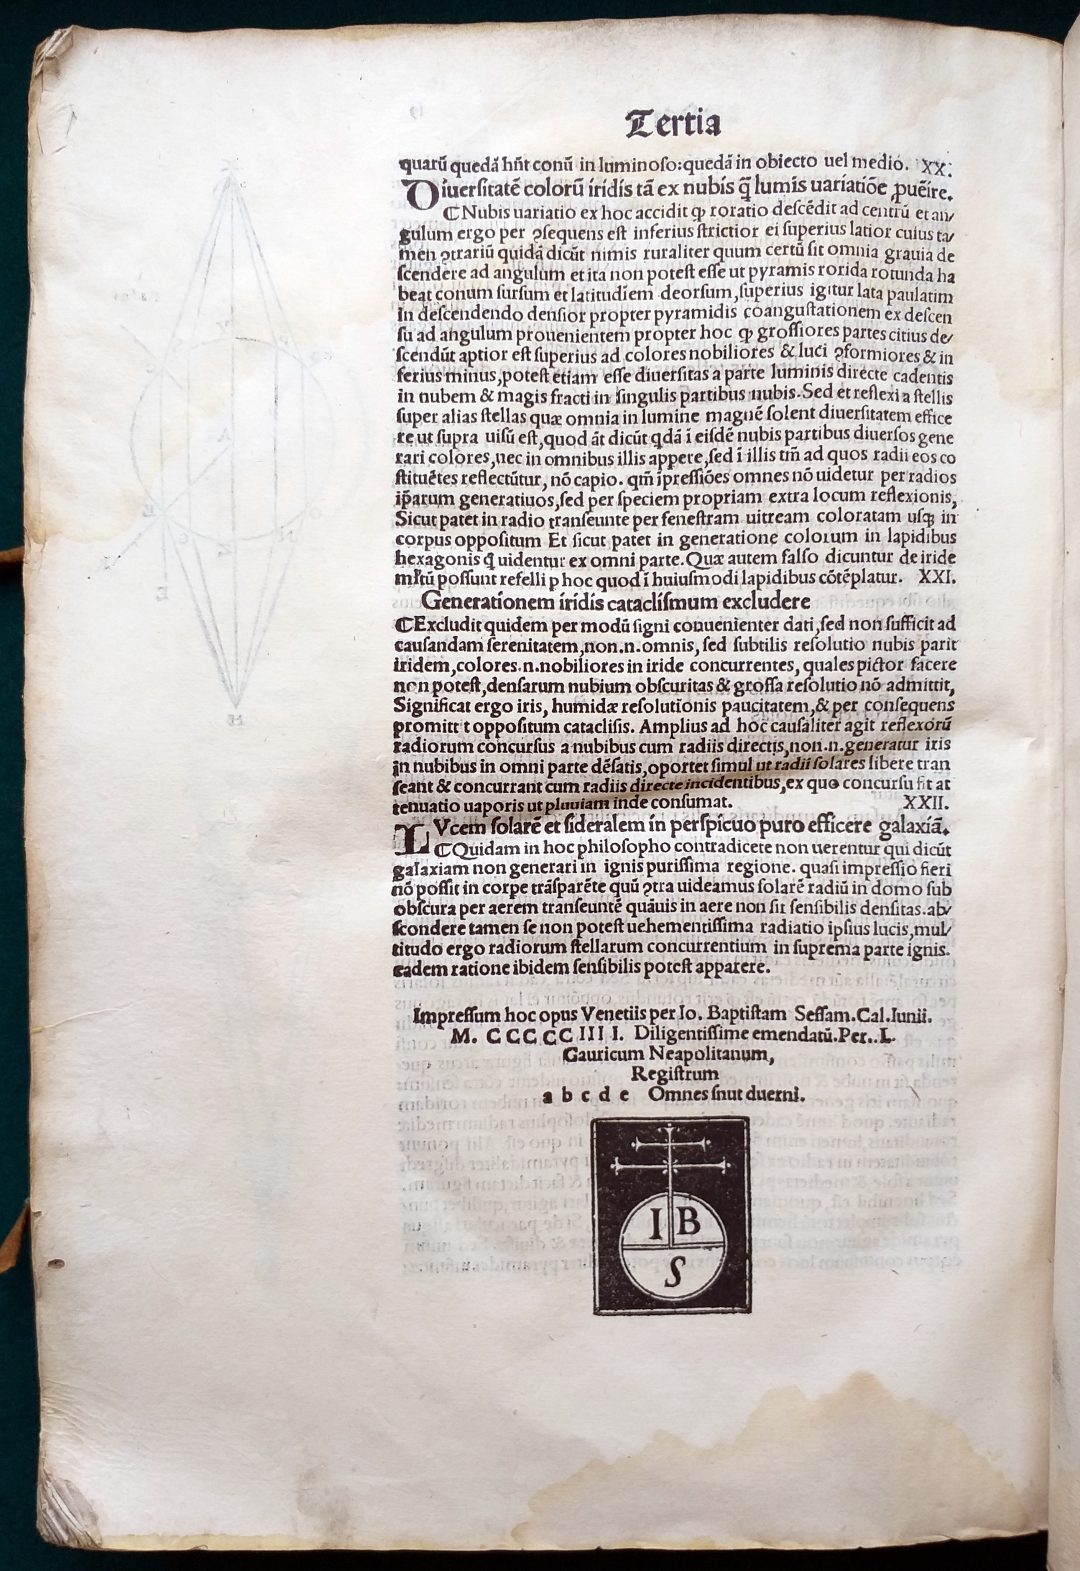 Tertia
quarū quedā hñt conū in luminoso:quedā in obiecto uel medio. XX.
Diuersitatē colorū iridis tā ex nubis q̄ lumīs uariatiōe ꝓuēire.
⁋Nubis uariatio ex hoc accidit ꝙ roratio descēdit ad centrū et an/
gulum ergo per ꝯsequens est inferius strictior ei superius latior cuius ta/
men ꝯtrariū quidā dicūt nimis ruraliter quum certū sit omnia grauia de
scendere ad angulum et ita non potest esse ut pyramis rorida rotunda ha
beat conum sursum et latitudiem deorsum,superius igitur lata paulatim
In descendendo densior propter pyramidis coangustationem ex descen
su ad angulum prouenientem propter hoc ꝙ grossiores partes citius de/
scendūt aptior est superius ad colores nobiliores & luci ꝯformiores & in
ferius minus,potest etiam esse diuersitas a parte luminis directe cadentis
in nubem & magis fracti in singulis partibus nubis.Sed et reflexi a stellis
super alias stellas quæ omnia in lumine magnē solent diuersitatem effice
re ut supra uisū est,quod āt dicūt qdā ī eisdē nubis partibus diuersos gene
rari colores,nec in omnibus illis appere,sed ī illis tm̄ ad quos radii eos co
stituētes reflectūtur, nō capio. qm̄ īpressiōes omnes nō uidetur per radios
ip̄arum generatiuos,sed per speciem propriam extra locum reflexionis,
Sicut patet in radio transeunte per fenestram uitream coloratam usq; in
corpus oppositum Et sicut patet in generatione colorum in lapidibus
hexagonis q̄ uidentur ex omni parte.Quæ autem falso dicuntur de iride
mr̄tū possunt refelli p hoc quod ī huiusmodi lapidibus cōtēplatur. XXI.
Generationem iridis cataclismum excludere
⁋Excludit quidem per modū signi conuenienter dati,sed non sufficit ad
causandam serenitatem,non.n.omnis, sed subtilis resolutio nubis parit
iridem,colores.n.nobiliores in iride concurrentes, quales pictor facere
non potest,densarum nubium obscuritas & grossa resolutio nō admittit,
Significat ergo iris, humidæ resolutionis paucitatem,& per consequens
promitt t oppositum cataclisis. Amplius ad hoc causaliter agit reflexorū
radiorum concursus a nubibus cum radiis directis,non.n.generatur iris
in nubibus in omni parte dēsatis,oportet simul ut radii solares libere tran
seant & concurrant cum radiis directe incidentibus,ex quo concursu fit at
tenuatio uaporis ut pluuiam inde consumat. XXII.
LVcem solarē et sideralem in perspicuo puro efficere galaxiā.
⁋Quidam in hoc philosopho contradicere non uerentur qui dicūt
galaxiam non generari in ignis purissima regione. quasi impressio fieri
nō possit in corpe trāsparēte quū ꝯtra uideamus solarē radiū in domo sub
obscura per aerem transeuntē quāuis in aere non sit sensibilis densitas.ab/
scondere tamen se non potest uehementissima radiatio ipsius lucis,mul/
titudo ergo radiorum stellarum concurrentium in suprema parte ignis.
eadem ratione ibidem sensibilis potest apparere.
Impressum hoc opus Venetiis per Io. Baptistam Sessam.Cal.Iunii.
M. CCCCC IIII. Diligentissime emendatū.Per..L.
Gauricum Neapolitanum,
Registrum
a b c d e Omnes snut duerni.
I B
S